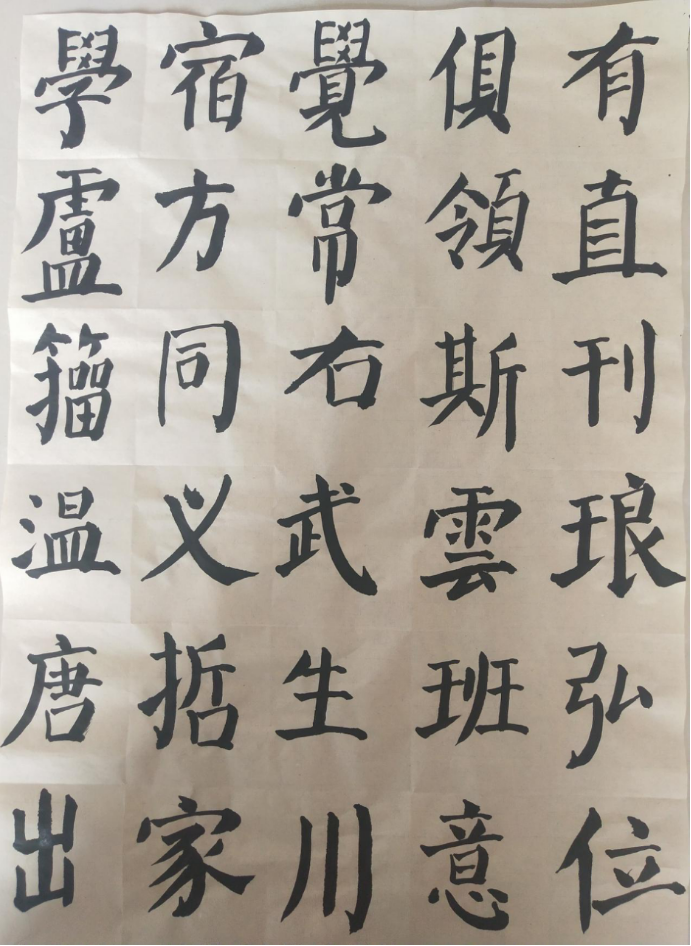 有直刊琅弘位
俱領斯雲班意
覺常右武生川
宿方同义哲家
學盧籀温唐出